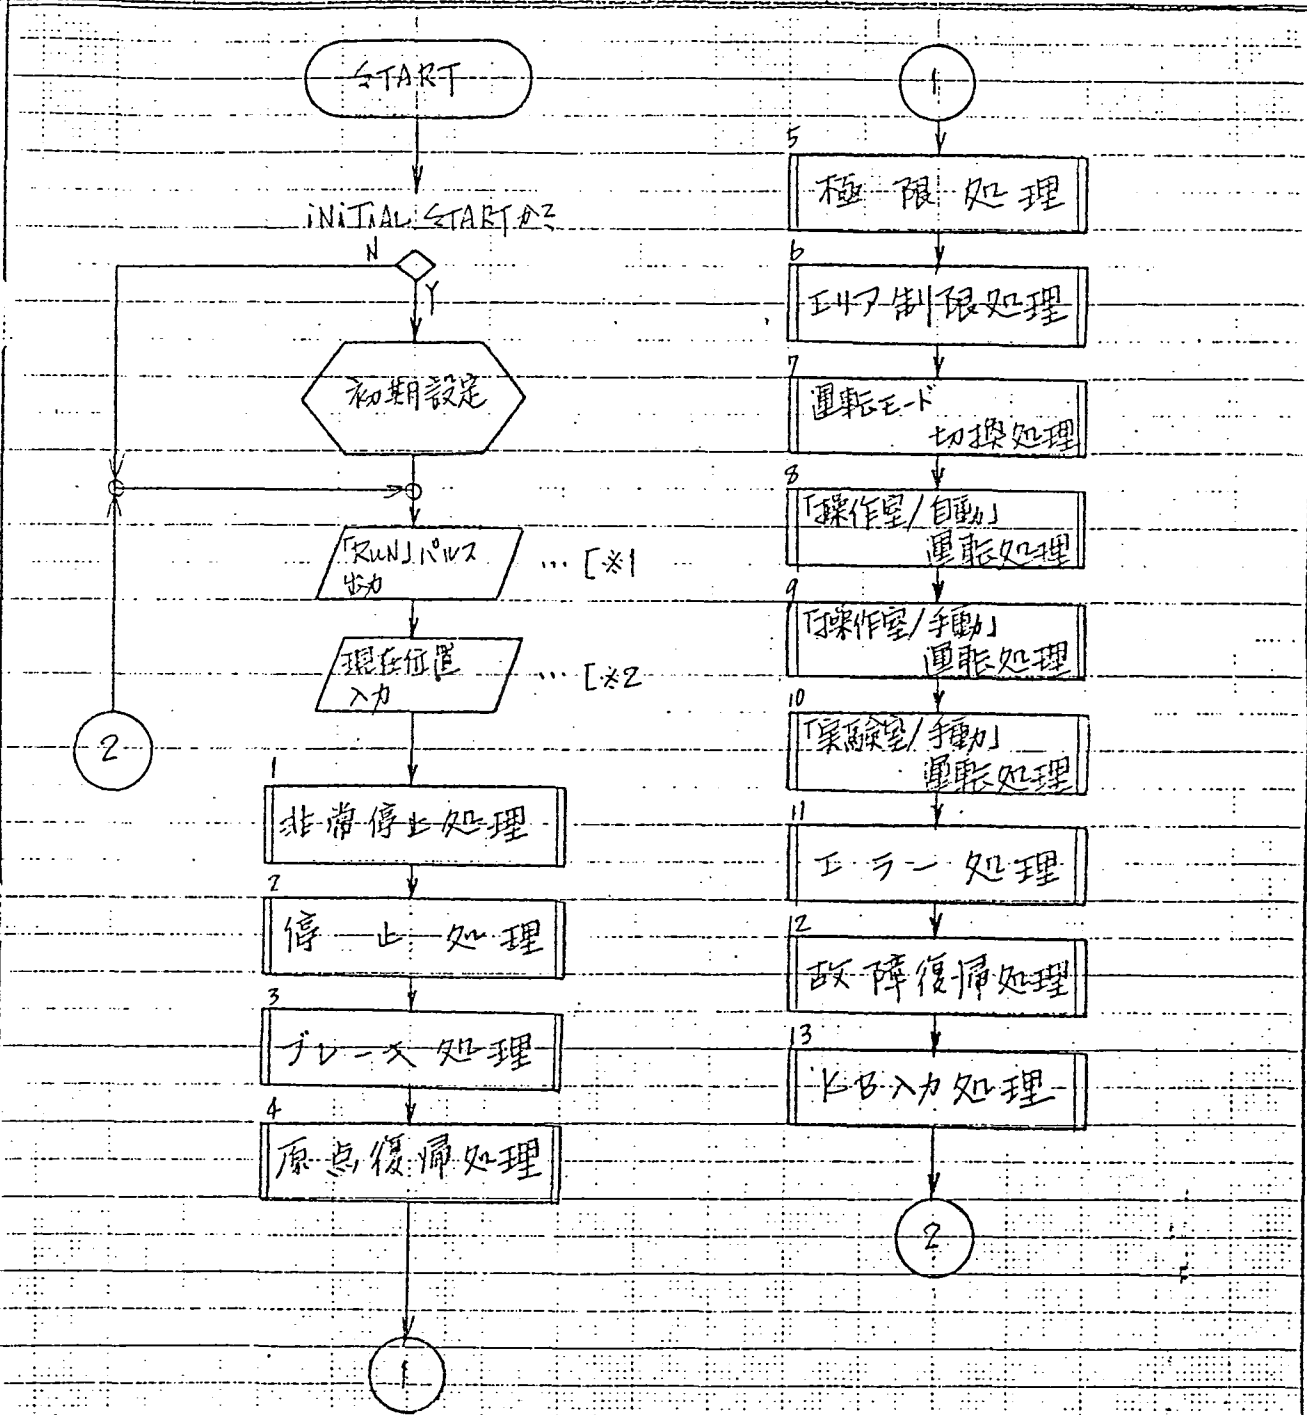 START
INITIAL STARTか?
N
Y
初期設定
「RUN」パルス
出力
… [※1
現在位置
入力
… [※2
2
1
非常停止処理
2
停止処理
3
ブレーキ処理
4
原点復帰処理
1
1
5
極限処理
6
エリア制限処理
7
運転モード
切換処理
8
「操作室/自動」
運転処理
9
「操作室/手動」
運転処理
10
「実験室/手動」
運転処理
11
エラー処理
12
故障復帰処理
13
KB入力処理
2